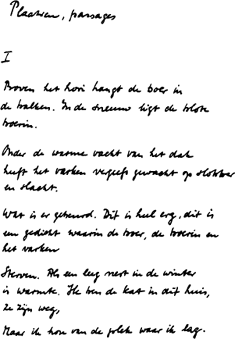 Plaatsen, passages
I
Boven het hooi hangt de boer in
de balken. In de sneeuw ligt de blote
boerin.
Onder de warme vacht van het dak
heeft het varken vergeefs gewacht op slobber
en slacht.
Wat is er gebeurd. Dit is heel erg, dit is
een gedicht waarin de boer, de boerin en
het varken
sterven. Als een leeg nest in de winter
is warmte. Ik ben de kat in dit huis,
ze zijn weg,
maar ik hou van de plek waar ik lag.